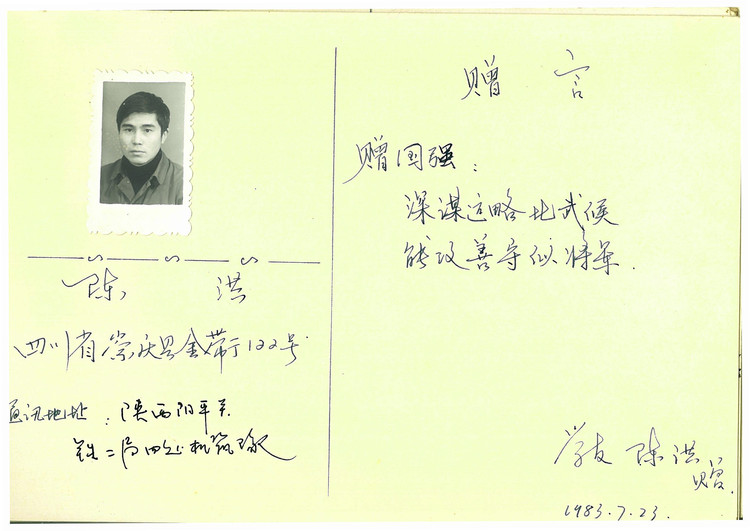 陈 洪
四川省崇庆县金带街122号
通讯地址：陕西阳平关
铁二局四处机筑队
赠 言
赠国强：
深谋远略比武候
能攻善守似将军.
学友 陈洪
赠.
1983.7.23.